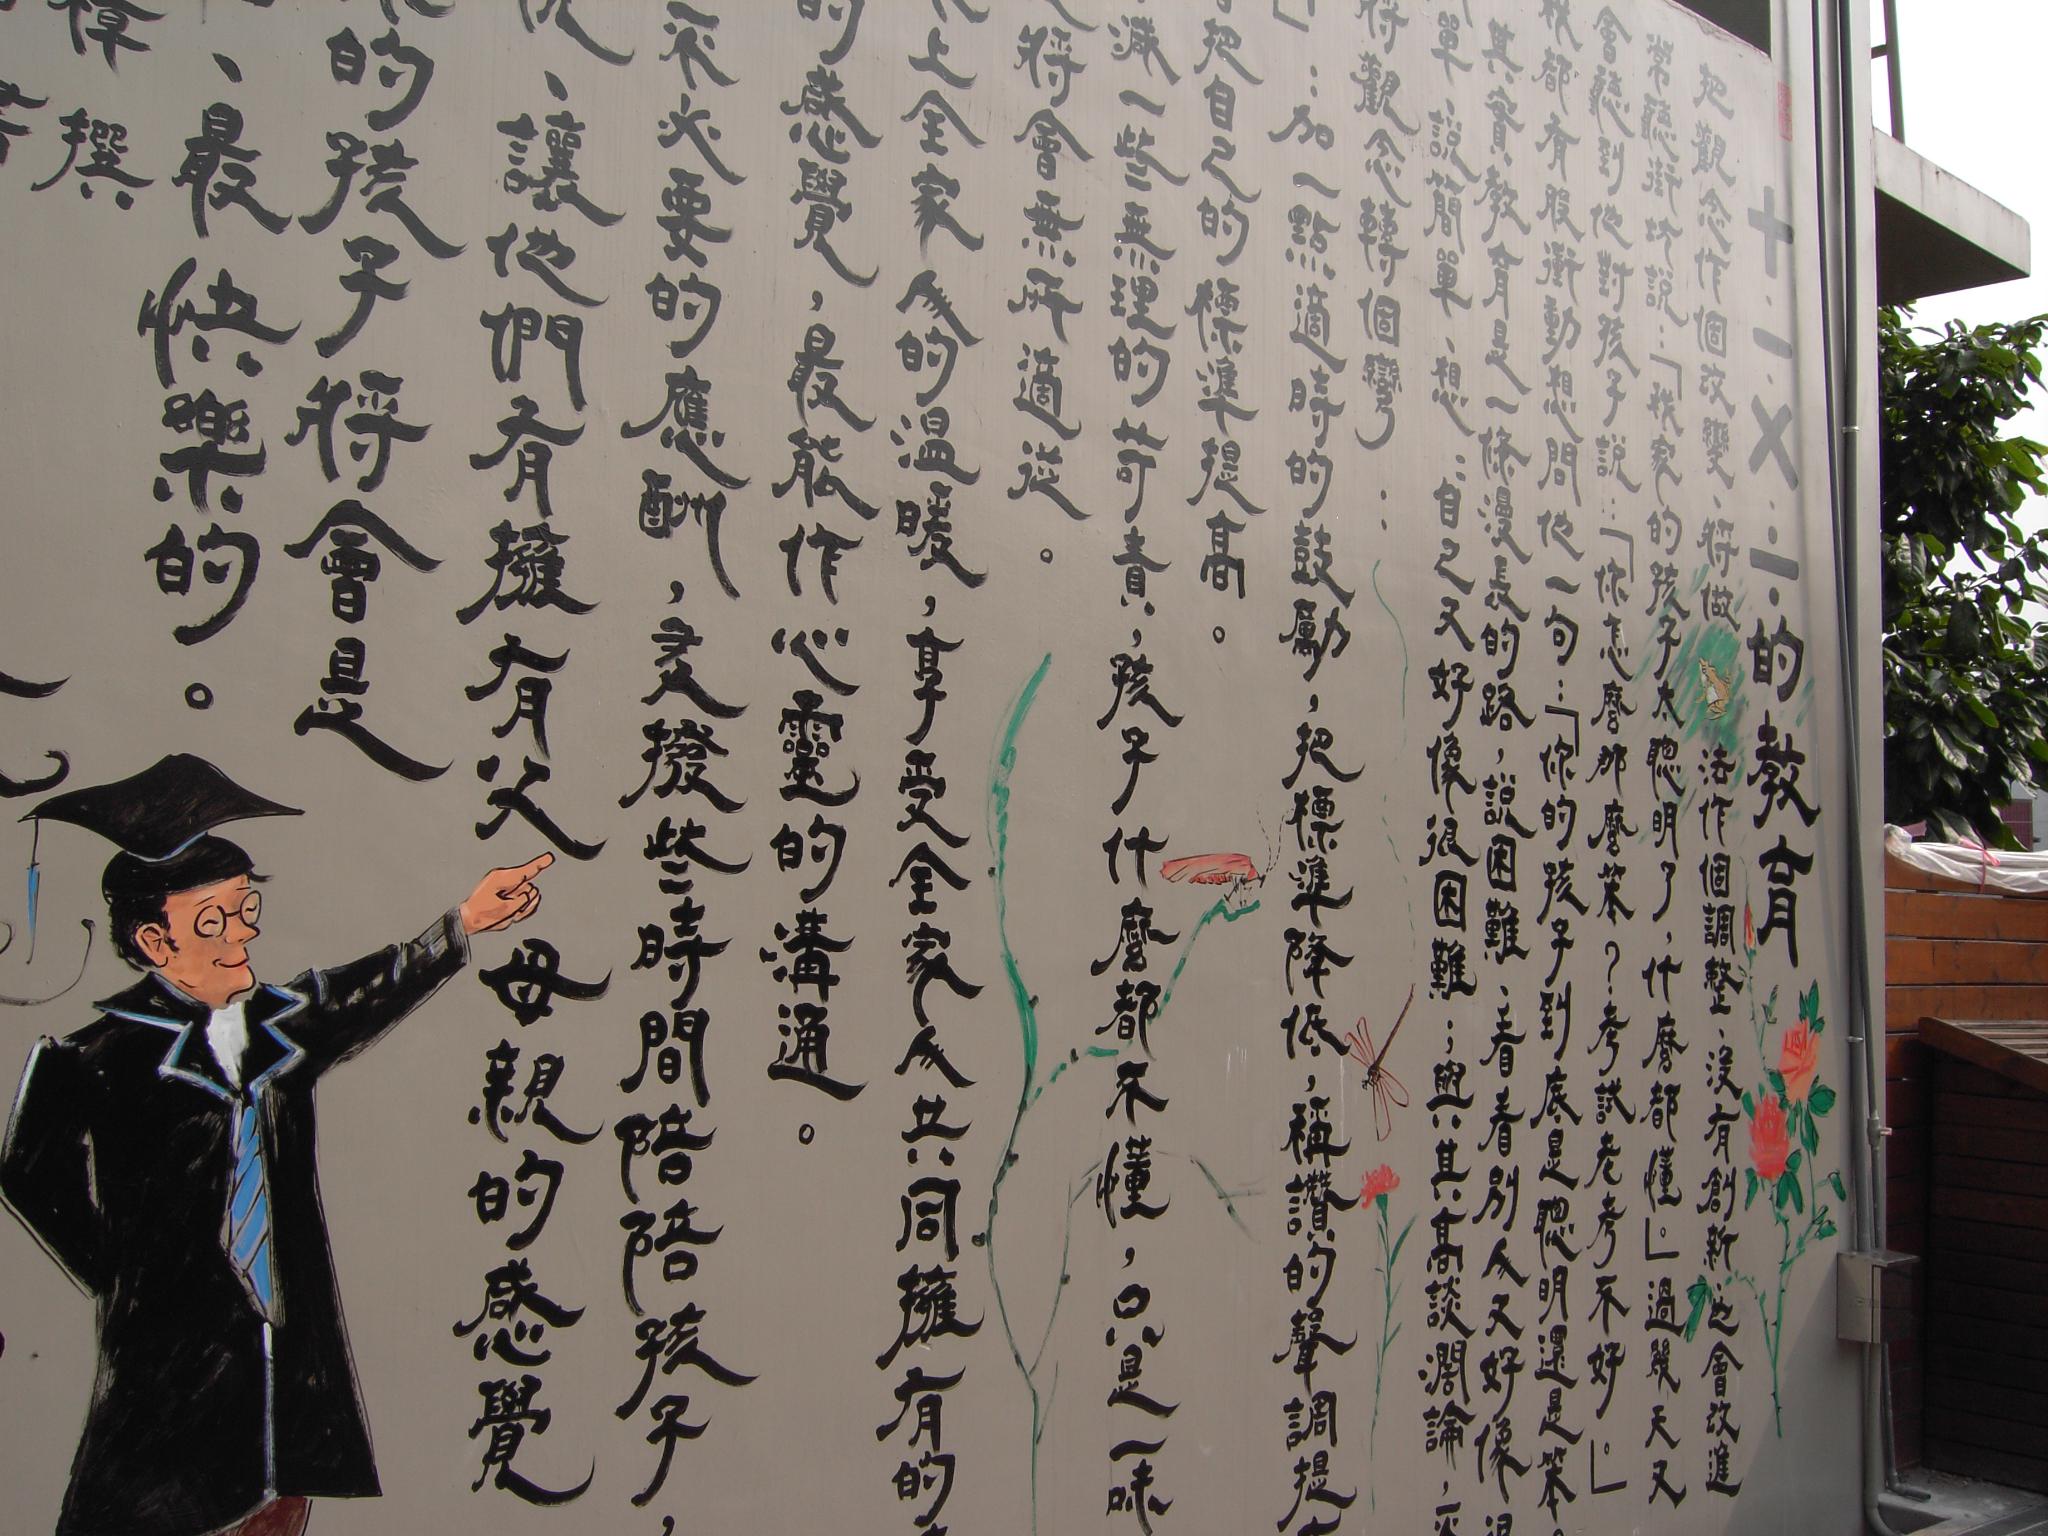 十.一.X.二.的教育
把觀念作個改變、將做法作個調整、沒有創新、也會改進
常聽街坊說:「我家的孩子太聰明了,什麼都懂。」過幾天又
會聽到他對孩子說:「你怎麼那麼笨?考試老考不好。」
我都有股衝動想問他一句:「你的孩子到底是聰明還是笨。
其實教育是一條漫長的路,說困難、看看別人又好像很
單、說簡單、想:自己又好像很困難;與其高談濶論,不
將觀念轉個彎:
:加一點適時的鼓勵,把標準降低,稱讚的聲調提
把自己的標準提高。
減一些無理的苛責,孩子什麼都不懂,只是一味
將會無所適從。
上全家人的溫暖,享受全家人共同擁有的
的感覺,最能作心靈的溝通。
不必要的應酬,多撥些時間陪陪孩子,
、讓他們有擁有父母親的感覺
的孩子將會是
、最快樂的。
撰